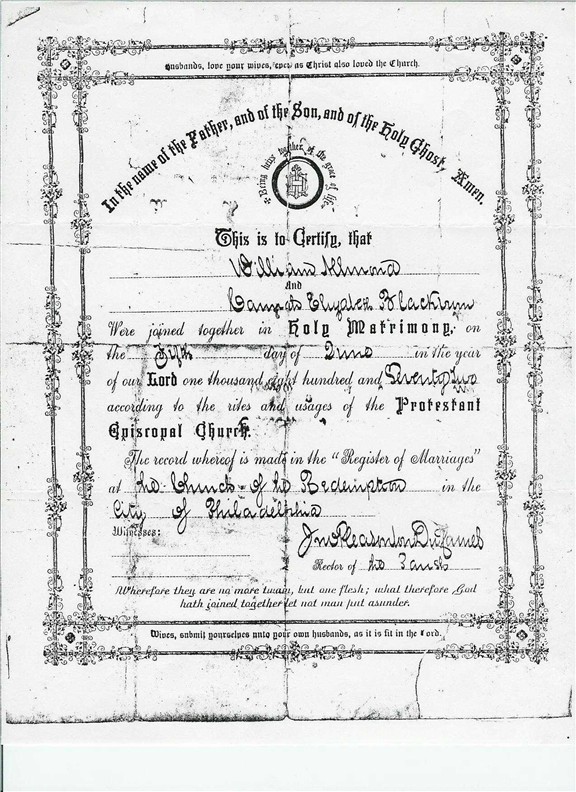 Husbands, love your wives, even as Christ also loved the Church.
In the name of the Father, and of the Son, and of the Holy Ghost, Amen.
Being heirs together of the grace of life.
This is to Certify, that
William Almond
And
Elizabeth Blackburn
Were joined together in Holy Matrimony, on
the Fifth day of June in the year
of our Lord one thousand eight hundred and Seventy two
according to the rites and usages of the Protestant
Episcopal Church.
The record whereof is made in the "Register of Marriages"
at the Church of the Redemption in the
City of Philadelphia
Witnesses:
Jno Pleasonton DuHamel
Rector of the Parish
Wherefore they are no more twain, but one flesh; what therefore God
hath joined together let not man put asunder.
Wives, submit yourselves unto your own husbands, as it is fit in the Lord.